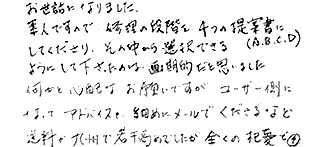 お世話になりました。
素人ですので 修理の段階を 4つの提案書に
してくださり、その中から選択できる (A.B.C.D)
ようにして下さったのは 画期的だと思いました
何かと心配な お願いですが ユーザー側に
なって アドバイスを 細めにメールでくださるなど
送料が九州で若干高めでしたが 全くの杞憂で